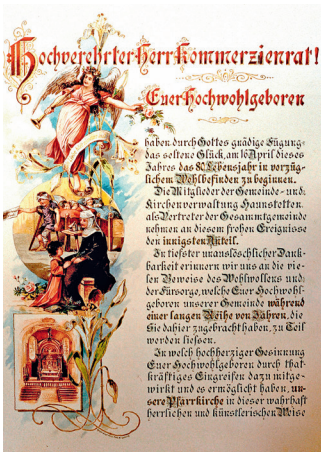 Hochverehrter Herr Kommerzienrat!
Euer Hochwohlgeboren
haben durch Gottes gnädige Fügung
das seltene Glück, am 16. April dieses
Jahres das 80. Lebensjahr in vorzüg-
lichem Wohlbefinden zu beginnen.
Die Mitglieder der Gemeinde- und
Kirchenverwaltung Haunstetten,
als Vertreter der Gesammtgemeinde
nehmen an diesem frohen Ereignisse
den innigsten Anteil.
In tiefster unauslöschlicher Dank-
barkeit erinnern wir uns an die vie-
len Beweise des Wohlwollens und
der Fürsorge, welche Euer Hochwohl-
geboren unserer Gemeinde während
einer langen Reihe von Jahren, die
Sie dahier zugebracht haben, zu Teil
werden liessen.
In welch hochherziger Gesinnung
Euer Hochwohlgeboren durch that-
kräftiges Eingreifen dazu mitge-
wirkt und es ermöglicht haben, un-
sere Pfarrkirche in dieser wahrhaft
herrlichen und künstlerischen Weise